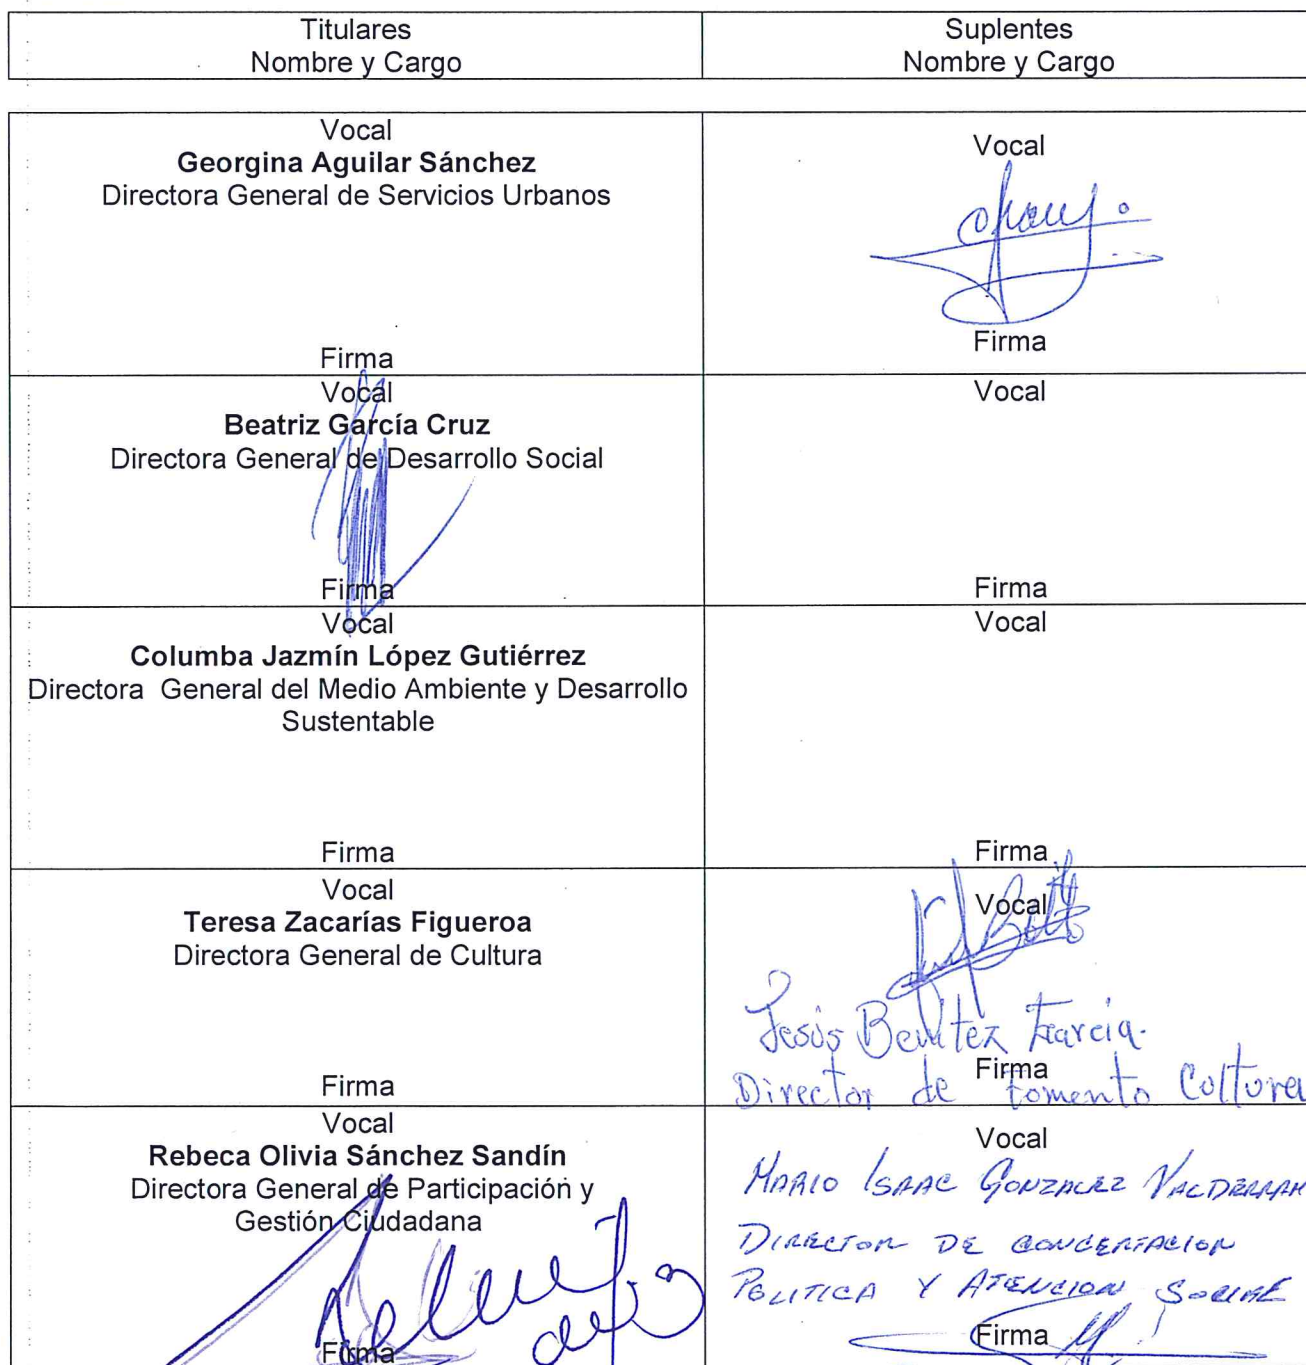 Titulares
Nombre y Cargo
Suplentes
Nombre y Cargo
Vocal
Georgina Aguilar Sánchez
Directora General de Servicios Urbanos
Firma
Vocal
Firma
Vocal
Beatriz García Cruz
Directora General de Desarrollo Social
Firma
Vocal
Firma
Vocal
Columba Jazmín López Gutiérrez
Directora General del Medio Ambiente y Desarrollo
Sustentable
Firma
Vocal
Firma
Vocal
Teresa Zacarías Figueroa
Directora General de Cultura
Firma
Vocal
Jesús Benitez Garcia.
Firma
Director de Fomento Cultura
Vocal
Rebeca Olivia Sánchez Sandín
Directora General de Participación y
Gestión Ciudadana
Firma
Vocal
MARIO ISAAC GONZALEZ VALDERRAM
DIRECTOR DE CONCERTACION
POLITICA Y ATENCION SOCIAL
Firma